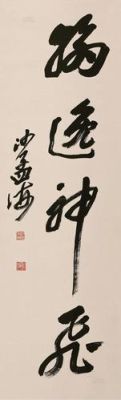 翰逸神飛
沙孟海